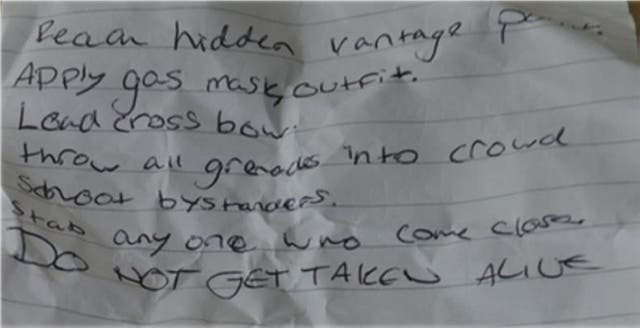 Reach hidden vantage
Apply gas mask, outfit.
Load cross bow.
throw all grenads into crowd
Schoot bystanders.
Stab any one who come close.
DO NOT GET TAKEN ALIVE